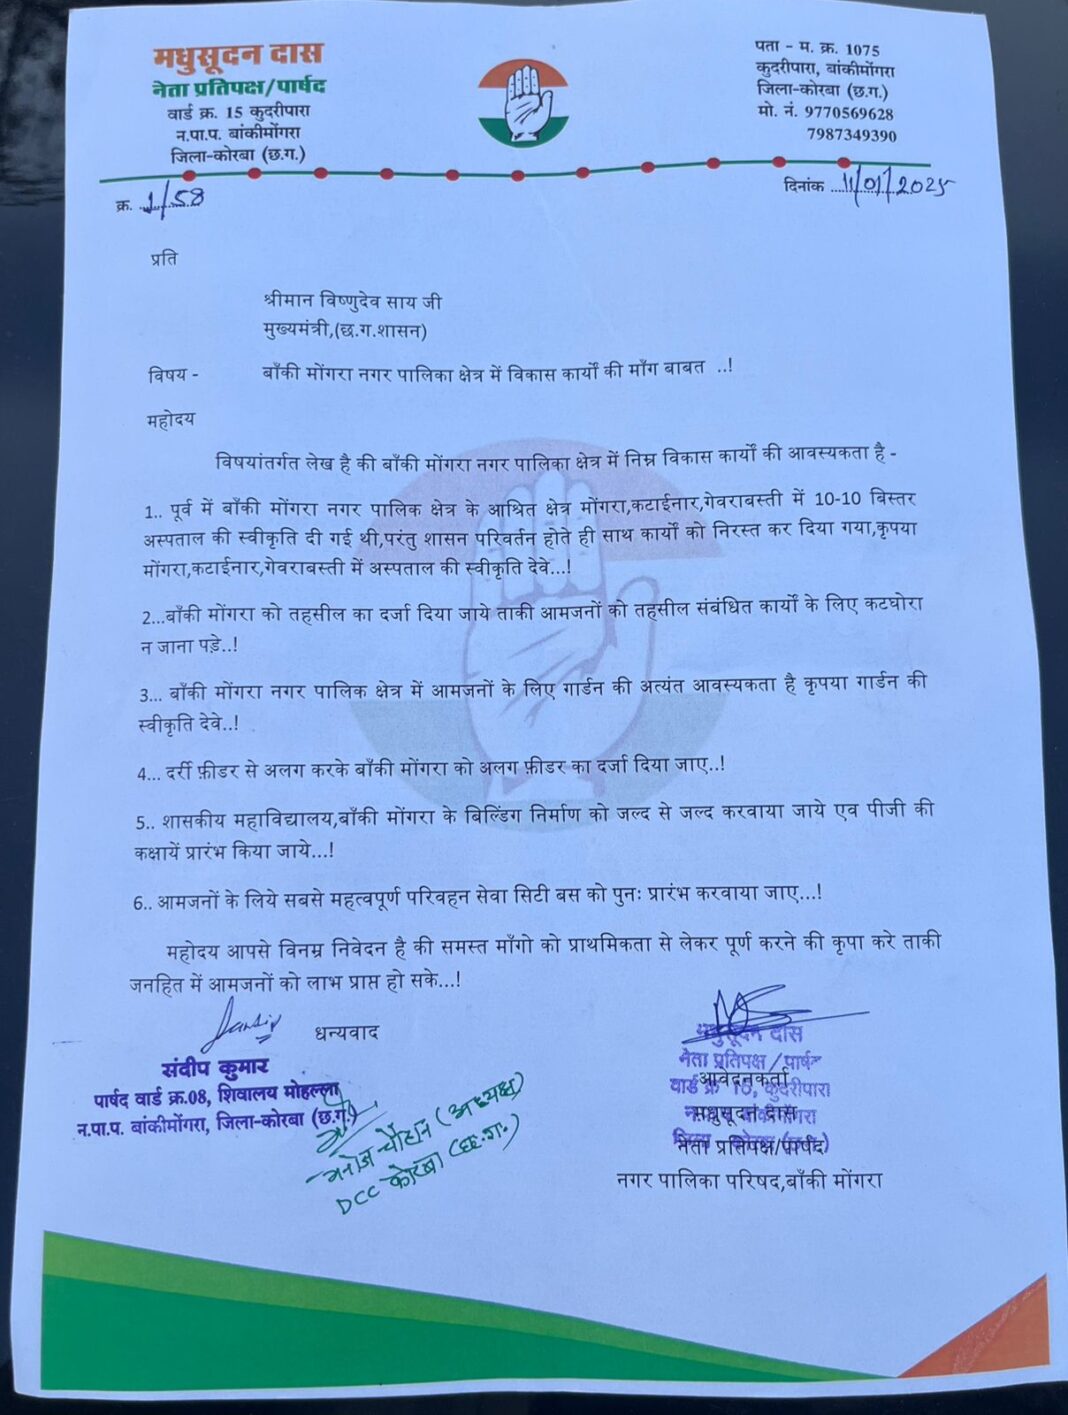 मधुसूदन दास
नेता प्रतिपक्ष/पार्षद
वार्ड क्र. 15 कुदरीपारा
न.पा.प. बांकीमोंगरा
जिला-कोरबा (छ.ग.)
पता - म. क्र. 1075
कुदरीपारा, बांकीमोंगरा
जिला-कोरबा (छ.ग.)
मो. नं. 9770569628
7987349390
क्र. 1/58
दिनांक 11/01/2025
प्रति
श्रीमान विष्णुदेव साय जी
मुख्यमंत्री,(छ.ग.शासन)
विषय - बाँकी मोंगरा नगर पालिका क्षेत्र में विकास कार्यों की माँग बाबत ..!
महोदय
विषयांतर्गत लेख है की बाँकी मोंगरा नगर पालिका क्षेत्र में निम्न विकास कार्यों की आवस्यकता है -
1.. पूर्व में बाँकी मोंगरा नगर पालिक क्षेत्र के आश्रित क्षेत्र मोंगरा,कटाईनार,गेवराबस्ती में 10-10 बिस्तर
अस्पताल की स्वीकृति दी गई थी,परंतु शासन परिवर्तन होते ही साथ कार्यों को निरस्त कर दिया गया,कृपया
मोंगरा,कटाईनार,गेवराबस्ती में अस्पताल की स्वीकृति देवे...!
2...बाँकी मोंगरा को तहसील का दर्जा दिया जाये ताकी आमजनों को तहसील संबंधित कार्यों के लिए कटघोरा
न जाना पड़े..!
3... बाँकी मोंगरा नगर पालिक क्षेत्र में आमजनों के लिए गार्डन की अत्यंत आवस्यकता है कृपया गार्डन की
स्वीकृति देवे..!
4... दर्री फ़ीडर से अलग करके बाँकी मोंगरा को अलग फ़ीडर का दर्जा दिया जाए..!
5.. शासकीय महाविद्यालय,बाँकी मोंगरा के बिल्डिंग निर्माण को जल्द से जल्द करवाया जाये एव पीजी की
कक्षायें प्रारंभ किया जाये...!
6.. आमजनों के लिये सबसे महत्वपूर्ण परिवहन सेवा सिटी बस को पुनः प्रारंभ करवाया जाए...!
महोदय आपसे विनम्र निवेदन है की समस्त माँगो को प्राथमिकता से लेकर पूर्ण करने की कृपा करे ताकी
जनहित में आमजनों को लाभ प्राप्त हो सके...!
धन्यवाद
संदीप कुमार
पार्षद वार्ड क्र.08, शिवालय मोहल्ला
न.पा.प. बांकीमोंगरा, जिला-कोरबा (छ.ग.)
मनोज चौहान (अध्यक्ष)
DCC कोरबा (छ.ग.)
मधुसूदन दास
नेता प्रतिपक्ष/पार्षद
वार्ड क्र 15, कुदरीपारा
आवेदनकर्ता
मधुसूदन दास
नेता प्रतिपक्ष/पार्षद)
नगर पालिका परिषद,बाँकी मोंगरा